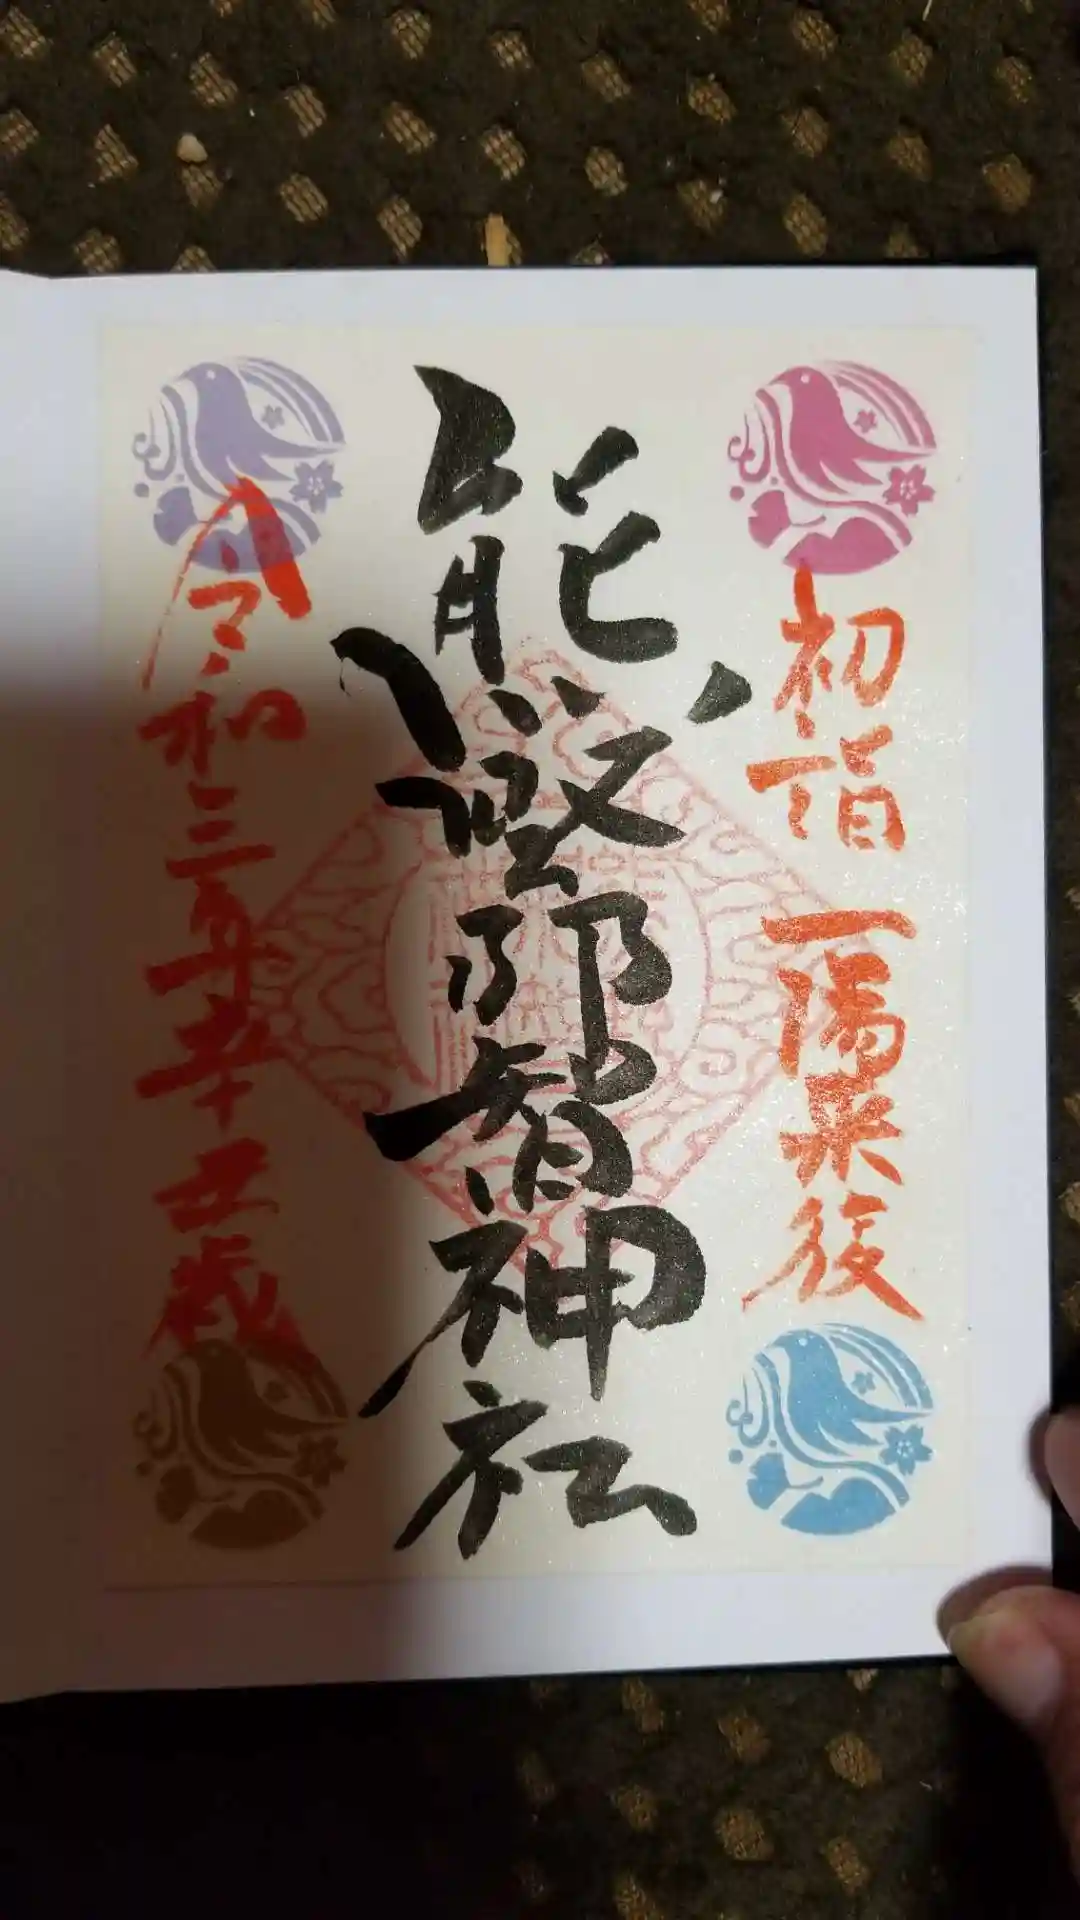 初詣 一陽来復
熊野那智神社
令和三年辛丑歳